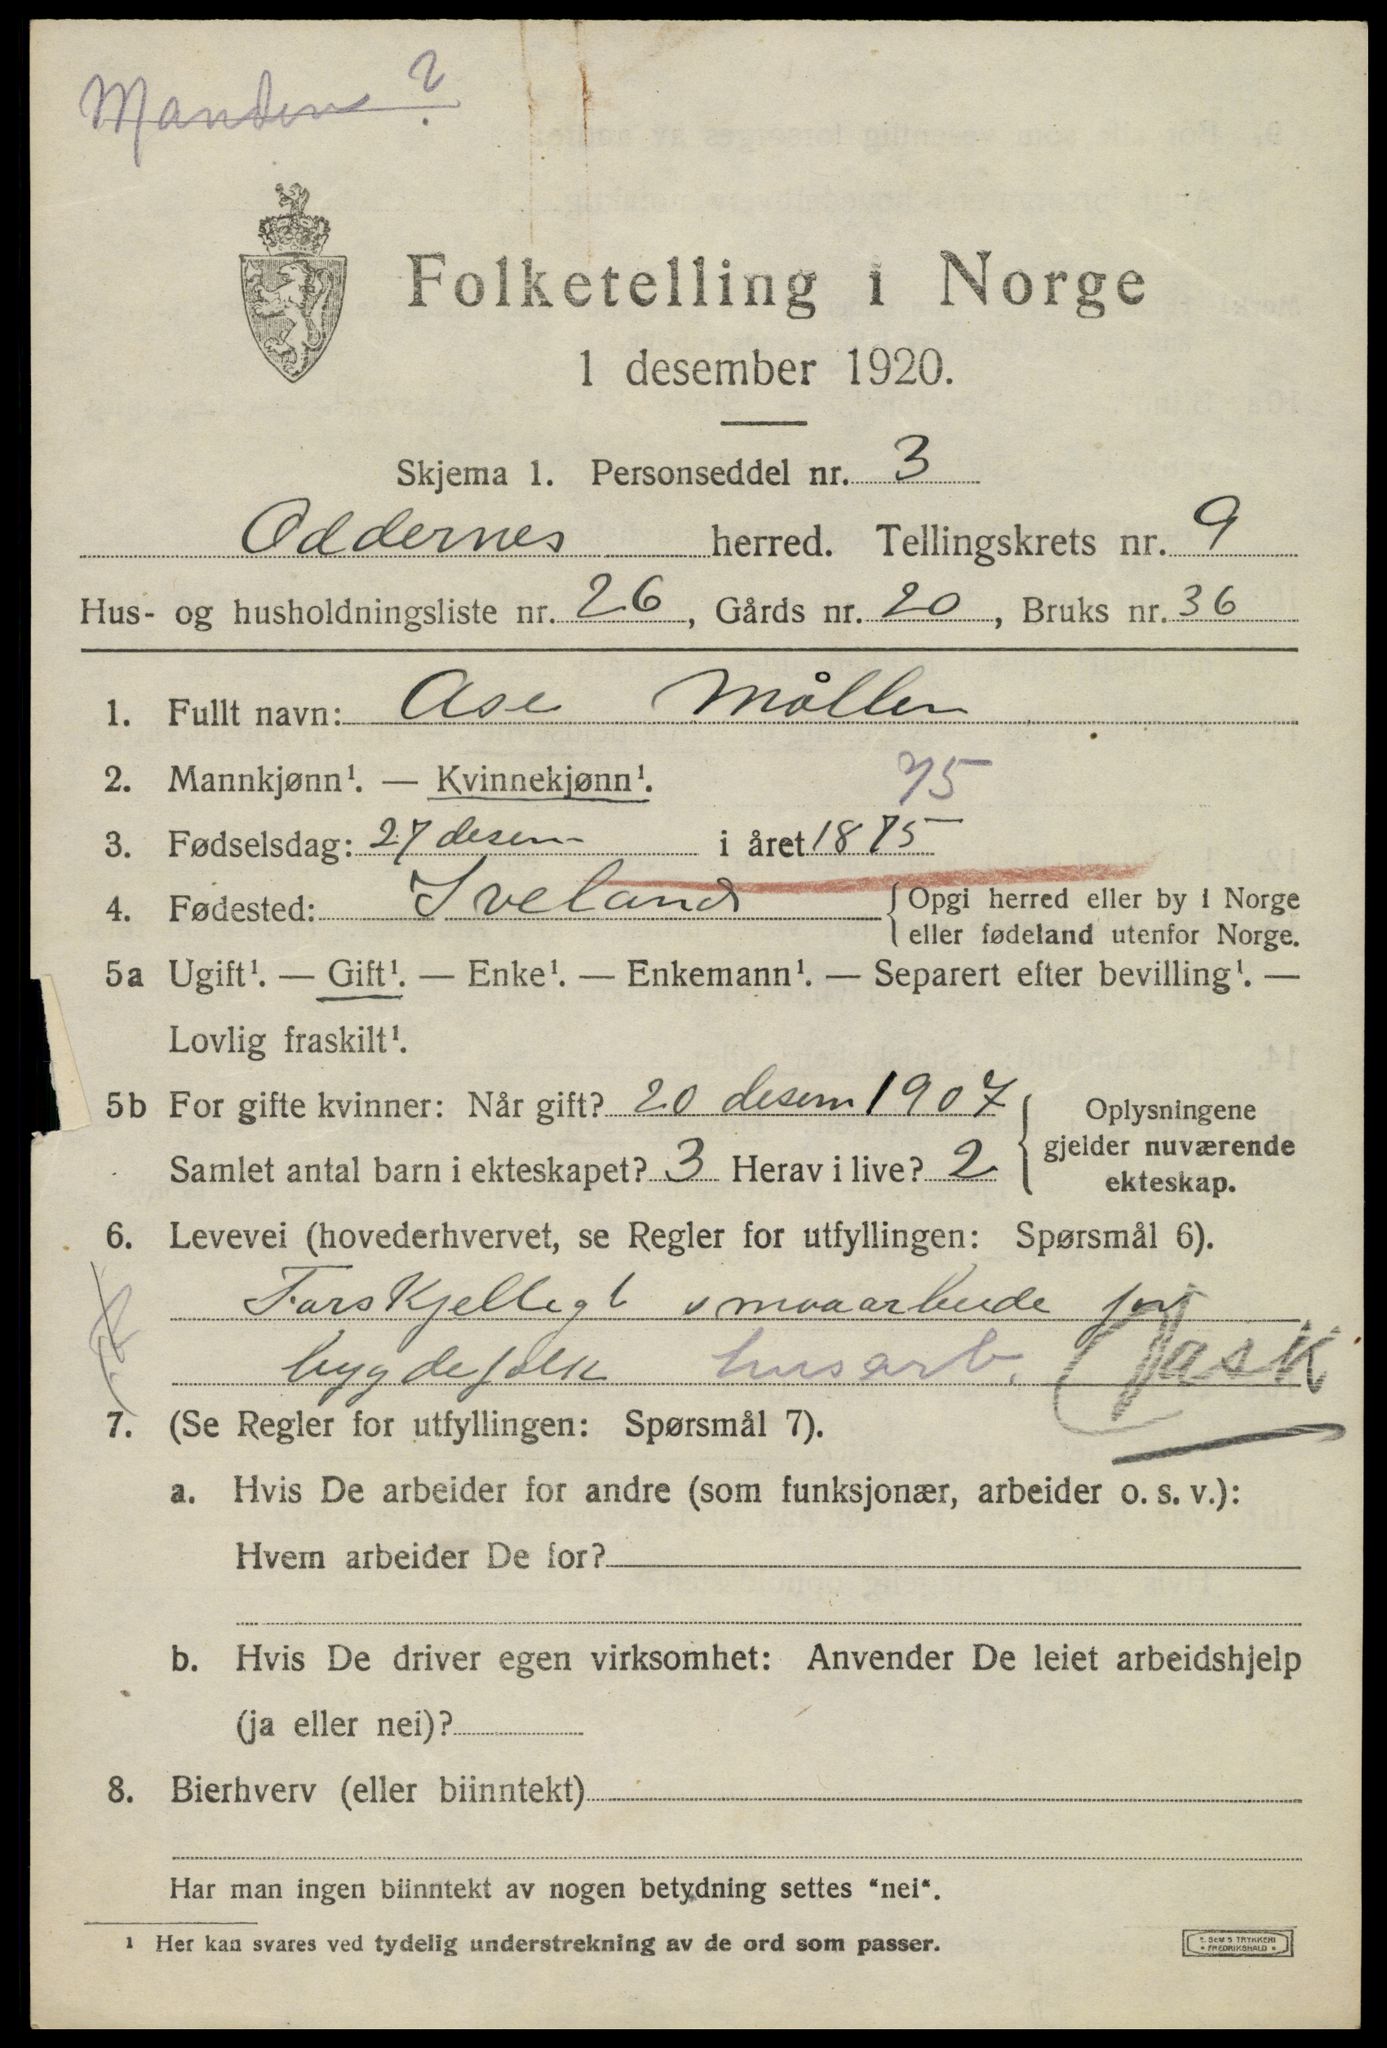 Manden ?
Folketelling i Norge
1 desember 1920.
Skjema 1. Personseddel nr. 3
Oddernes herred. Tellingskrets nr. 9
Hus- og husholdningsliste nr. 26, Gårds nr. 20, Bruks nr. 36
1. Fullt navn: Ase Møller
2. Mannkjønn¹. — Kvinnekjønn¹. 75
3. Fødselsdag: 27 desem i året 1875
4. Fødested: Iveland { Opgi herred eller by i Norge
eller fødeland utenfor Norge.
5a Ugift¹. — Gift¹. — Enke¹. — Enkemann¹. — Separert efter bevilling¹. —
Lovlig fraskilt¹.
5b For gifte kvinner: Når gift? 20 desem 1907
Samlet antal barn i ekteskapet? 3 Herav i live? 2
Oplysningene
gjelder nuværende
ekteskap.
6. Levevei (hovederhvervet, se Regler for utfyllingen: Spørsmål 6).
Forskjelligt smaaarbeide for
bygdefolk husarb. Vask
7. (Se Regler for utfyllingen: Spørsmål 7).
a. Hvis De arbeider for andre (som funksjonær, arbeider o. s. v.):
Hvem arbeider De for?
b. Hvis De driver egen virksomhet: Anvender De leiet arbeidshjelp
(ja eller nei)?
8. Bierhverv (eller biinntekt)
Har man ingen biinntekt av nogen betydning settes "nei".
¹ Her kan svares ved tydelig understrekning av de ord som passer.
E. SEM'S TRYKKERI
FREDRIKSHALD